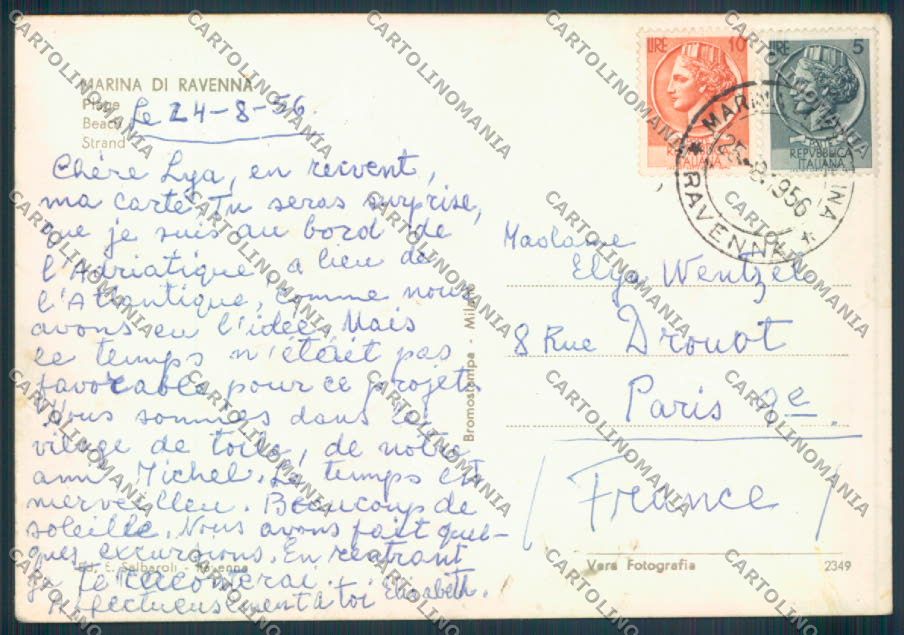 MARINA DI RAVENNA
Plage
Beach
Strand
Le 24-8-56
Chère Lya, en recivent,
ma carte, tu seras surprise,
que je suis au bord de
l'Adriatique a lieu de
l'Atlantique, comme nous
avons eu l'idée. Mais
le temps n'était pas
favorable pour ce projet.
Nous sommes dans le
village de toile, de notre
ami Michel. Le temps est
merveilleu. Beaucoup de
soleille. Nous avons fait quel-
ques excursions. En rentrant
je te
Affectueusement à toi Elisabeth.
Ed. E. Salbaroli - Ravenna
Bromostampa - Milano
LIRE 10
REPVBBLICA
ITALIANA
LIRE 5
REPVBBLICA
ITALIANA
MARINA
RAVENNA
25-8-1956
Madame
Elya Wentzel
8 Rue Drouot
Paris 9e
(France)
Vera Fotografia
2349
CARTOLINOMANIA